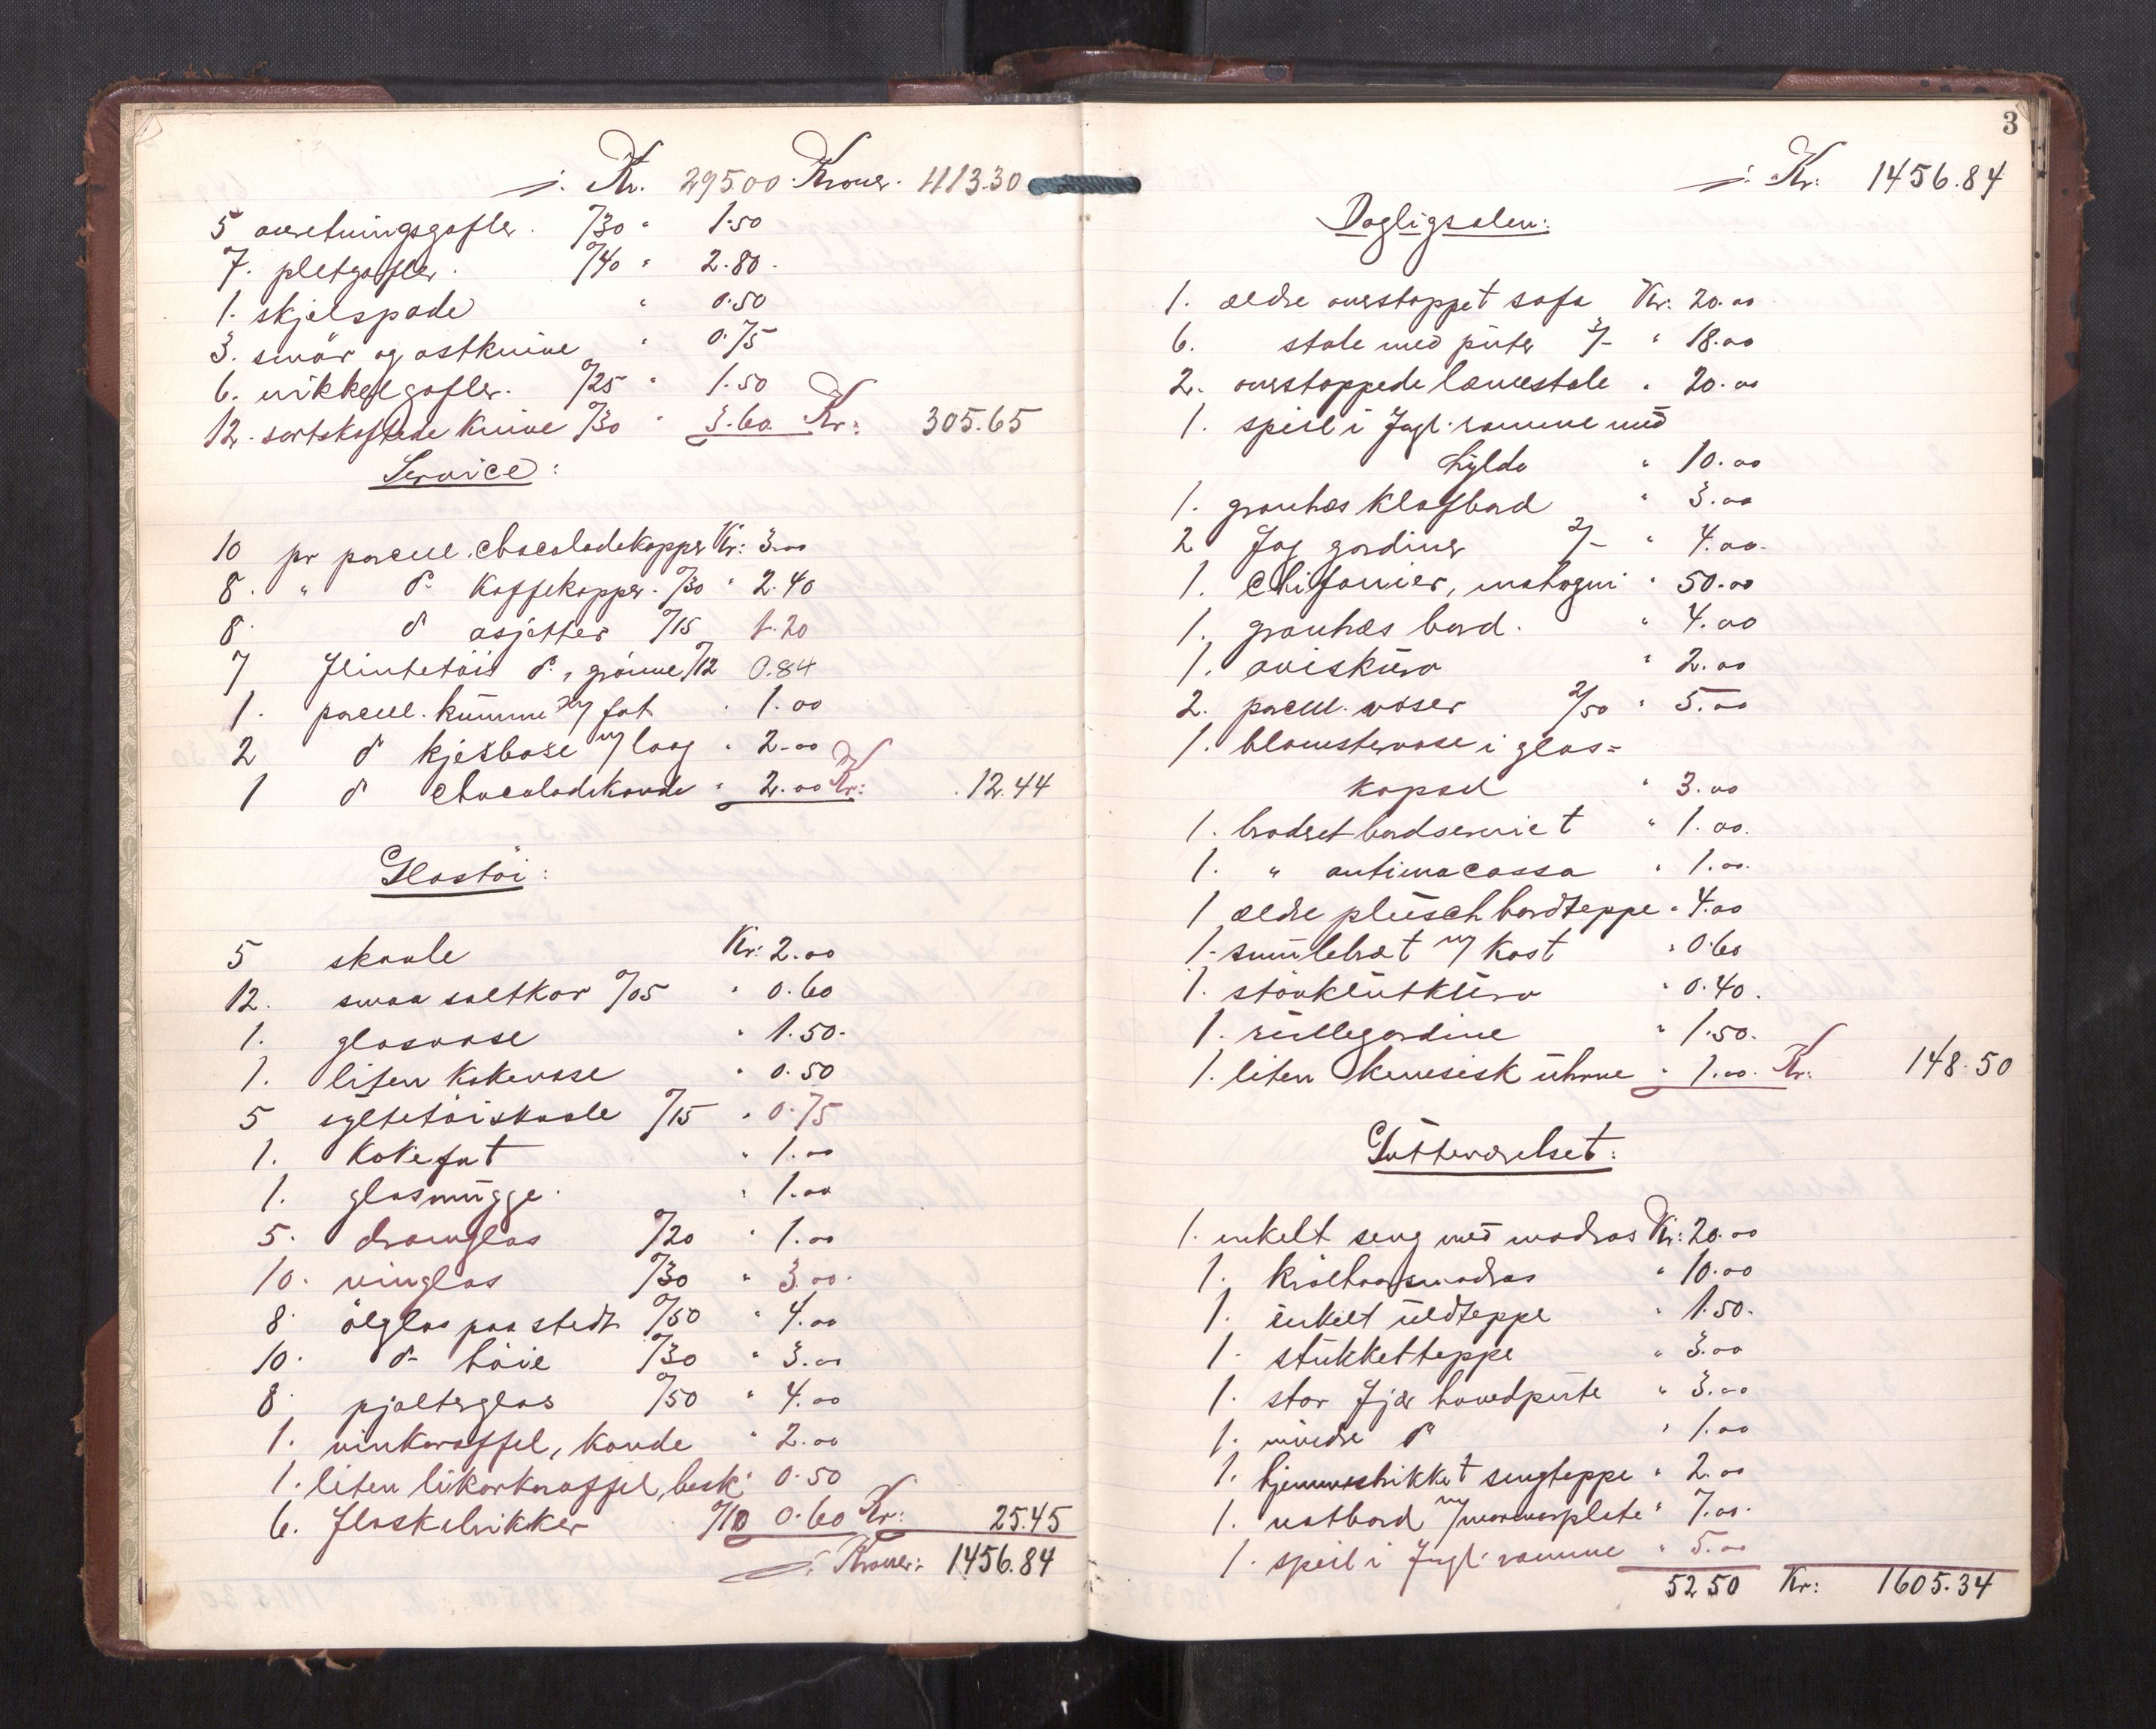 ÷ Kr. 295.00 Kroner. 1113.30
5 anretningsgafler. %30 " 1.50
7. pletgafler. %40 " 2.80.
1. skjelspade " 0.50
3. smör og ostknive " 0.75
6. nikkelgafler. %25 " 1.50
12. sortskaftede knive %30 " 3.60 Kr: 305.65
Service:
10 pr porcell. chocoladekopper Kr: 3.00
8. " do kaffekopper. %30 " 2.40
8. do asjetter %15 1.20
7 flintetöis do, grönne %12 0.84
1. porcell. kumme m/ fat " 1.00
2 do kjeksbokse m/ laag " 2.00
1 do chocoladekande " 2.00 Kr: 12.44
Glastöi:
5 skaale Kr: 2.00
12. smaa saltkar %05 " 0.60
1. glasvase " 1.50.
1. liten kakevase " 0.50
5 syltetöiskaale %15 " 0.75
1. kakefat " 1.00
1. glasmugge. " 1.00
5. dramglas %20 " 1.00
10. vinglas %30 " 3.00.
8. ölglas paa stedt %50 " 4.00
10. do höie %30 " 3.00
8. pjolterglas %50 " 4.00
1. vinkaraffel, kande " 2.00
1. liten likörkaraffel, besk. 0.50
6. flaskebrikker %10 0.60 Kr: 25.45
÷ Kroner: 1456.84
3
÷ Kr: 1456.84
Dagligsalen:
1. ældre overstoppet sofa Kr: 20.00
6. stole med puter 3/- " 18.00
2. overstoppede lænestole " 20.00
1. speil i fugl. ramme med
hylde " 10.00
1. granhæs klafbord " 3.00
2 fag gardiner 2/- " 4.00.
1. Chifonier, mahogni " 50.00
1. granhæs bord. " 4.00
1. aviskurv " 2.00
2. porcell. vaser 2/50 " 5.00
1. blomstervase i glas=
kapsel " 3.00
1. broderet bordserviet " 1.00.
1. " antimacassa " 1.00.
1 ældre plüsch bordteppe " 4.00
1. smulebræt m/ kost " 0.60
1. stövklutkurv " 0.40.
1. rullegardine " 1.50.
1. liten kinesisk uhrne " 1.00. Kr: 148.50
Gutteværelset:
1. enkelt seng med madras Kr: 20.00
1. krölhaarsmadras " 10.00
1. enkelt uldteppe " 1.50.
1. stukket teppe " 3.00
1. stor fjær hovedpute " 3.00
1. mindre do " 1.00
1. hjemmestrikket sengteppe " 2.00
1. natbord m/ marmorplate " 7.00.
1. speil i fugl. ramme " 5.00
52 50 Kr: 1605.34